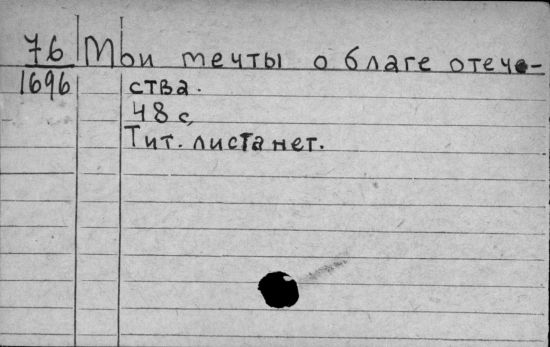 76 Мои мечты о благе отече-
1696 ства.
48 с.
Тит. листа нет.